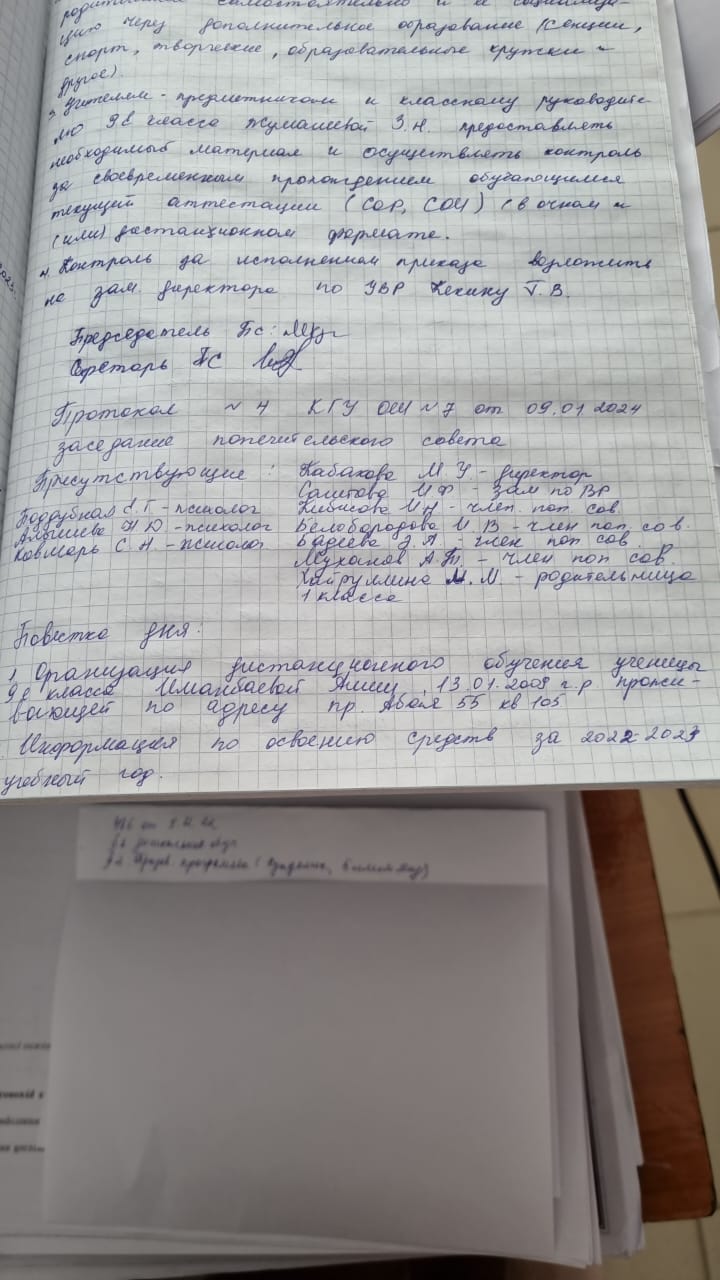 родителями самостоятельно и её социализа-
цию через дополнительное образование (секции,
спорт, творческие, образовательные кружки и
другое).
3. Учителям-предметникам и классному руководите-
лю 9в класса Жумашевой З.Н. предоставлять
необходимый материал и осуществлять контроль
за своевременным прохождением обучающимся
текущей аттестации (СОР, СОЧ) (в очном и
(или) дистанционном формате.
4. Контроль за исполнением приказа возложить
на зам. директора по УВР Кекину Т.В.
Председатель ПС:
Секретарь ПС
Протокол №4 КГУ ОСШ №7 от 09.01.2024
заседание попечительского совета
Присутствующие: Кабахова М.У. - директор
Саштова М.Ф. - зам по ВР
Поддубная Л.Г - психолог Кибисова М.Н - член. поп. сов.
Алышева Н.Ю - психолог Белобородова И.В - член поп. сов.
Ковмарь С.Н. - психолог Бадеева Э.А. - член поп сов.
Муханов А.Т. - член поп сов.
Хайруллина М.М. - родительница
1 класса
Повестка дня:
1. Организация дистанционного обучения ученицы
9 класса Иманбаевой 13.01.2009 г.р. прожи-
вающей по адресу пр. Абая 55 кв 105
Информация по освоению средств за 2022-2023
учебный год.